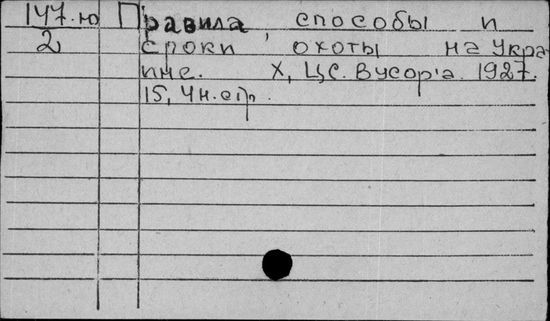 147.ю Правила, способы и
2 сроки охоты на Укра
ине. Х, ЦС. Вусор'а. 1927.
15, 4н.стр.